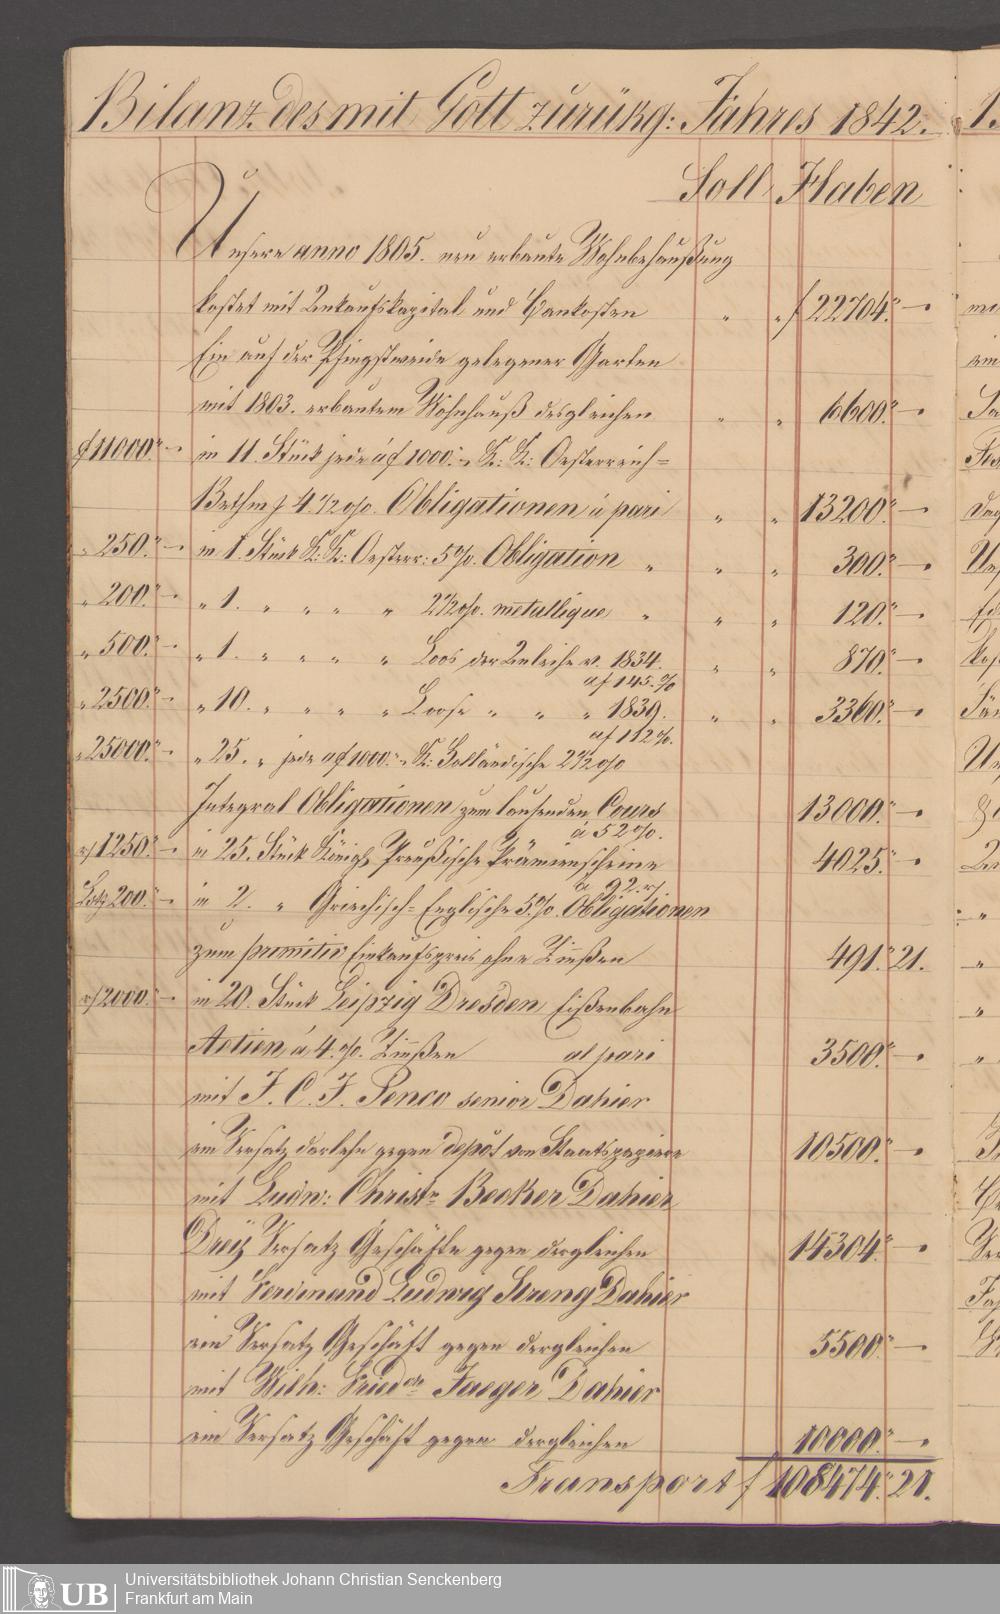 Bilanz des mit Gott zurükg: Jahres 1842.
Soll Haben
Unsere anno 1805. neu erbaute Wohnbehaußung
kostet mit Ankaufskapital und Baukosten " " f 22704." —
Ein auf der Pfingstweide gelegener Garten
mit 1803. erbautem Wohnhauß desgleichen " " 6600." —
f 11000." — in 11. Stück jede á f 1000." K: K: Oesterreich=
Bethm 4.1/2 o/o. Obligationen á pari " " 13200." —
" 250." — in 1. Stück K: K: Oesterr: 5 o/o. Obligation " " " 300." —
" 200." — " 1. " " " " 2 1/2 o/o. metallique " " " 120." —
" 500." — " 1. " " " " Loos der Anleihe v. 1834. " " 870." —
á f 145. o/o
" 2500." — " 10. " " " " Loose " " " 1839. " " 3360." —
á f 112 o/o.
" 25000." — " 25. " jede á f 1000." K: Holländische 2 1/2 o/o
Integral Obligationen zum laufenden Cours 13000." —
á 52 o/o.
1250." — in 25. Stück Königl. Preußische Prämienscheine 4025." —
á 92.
200." — in 2. " Griechisch=Englische 5. o/o. Obligationen
zum primitiv Einkaufspreis ohne Zinßen 491." 21.
2000." — in 20. Stück Leipzig Dresden Eißenbahn
Actien á 4. o/o. Zinßen al pari 3500." —
mit J. C. J. Penco senior Dahier
ein Versatz darlehn gegen depôt von Staatspapiere 10500." —
mit Ludw: Christn Becker Dahier
Dreÿ Versatz Geschäfte gegen dergleichen 14304." —
mit Ferdinand Ludwig Streng Dahier
ein Versatz Geschäft gegen dergleichen 5500." —
mit Wilh: Friedch Jaeger Dahier
ein Versatz Geschäft gegen dergleichen 10000." —
Transport f 108474." 21.
UB
Universitätsbibliothek Johann Christian Senckenberg
Frankfurt am Main